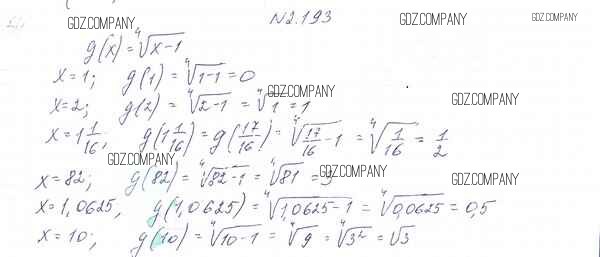 GDZ.COMPANY №2.193 GDZ.COMPANY GDZ.COMPANY
g(x) = ⁴√(x-1)
x=1; g(1) = ⁴√(1-1) = 0
GDZ.COMPANY
x=2; g(2) = ⁴√(2-1) = ⁴√1 = 1 GDZ.COMPANY
x=1 1/16; g(1 1/16) = g(17/16) = ⁴√(17/16 - 1) = ⁴√(1/16) = 1/2
GDZ.COMPANY
x=82; g(82) = ⁴√(82-1) = ⁴√81 = 3 GDZ.COMPANY GDZ.COMPANY
x=1,0625, g(1,0625) = ⁴√(1,0625-1) = ⁴√(0,0625) = 0,5
x=10; g(10) = ⁴√(10-1) = ⁴√9 = ⁴√(3²) = √3
GDZ.COMPANY